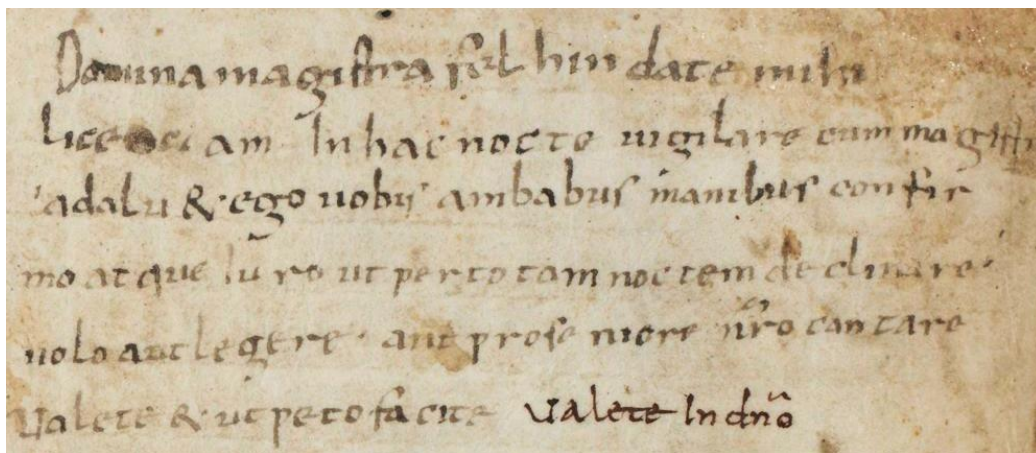 Domna magistra felhin date mihi
licentiam In hac nocte vigilare cum magistra
adalu & ego vobis ambabus manibus confir
mo atque Iuro ut per totam noctem declinare
volo aut legere aut pro seniore nr̄o cantare
Valete & ut peto facite Valete In dnō